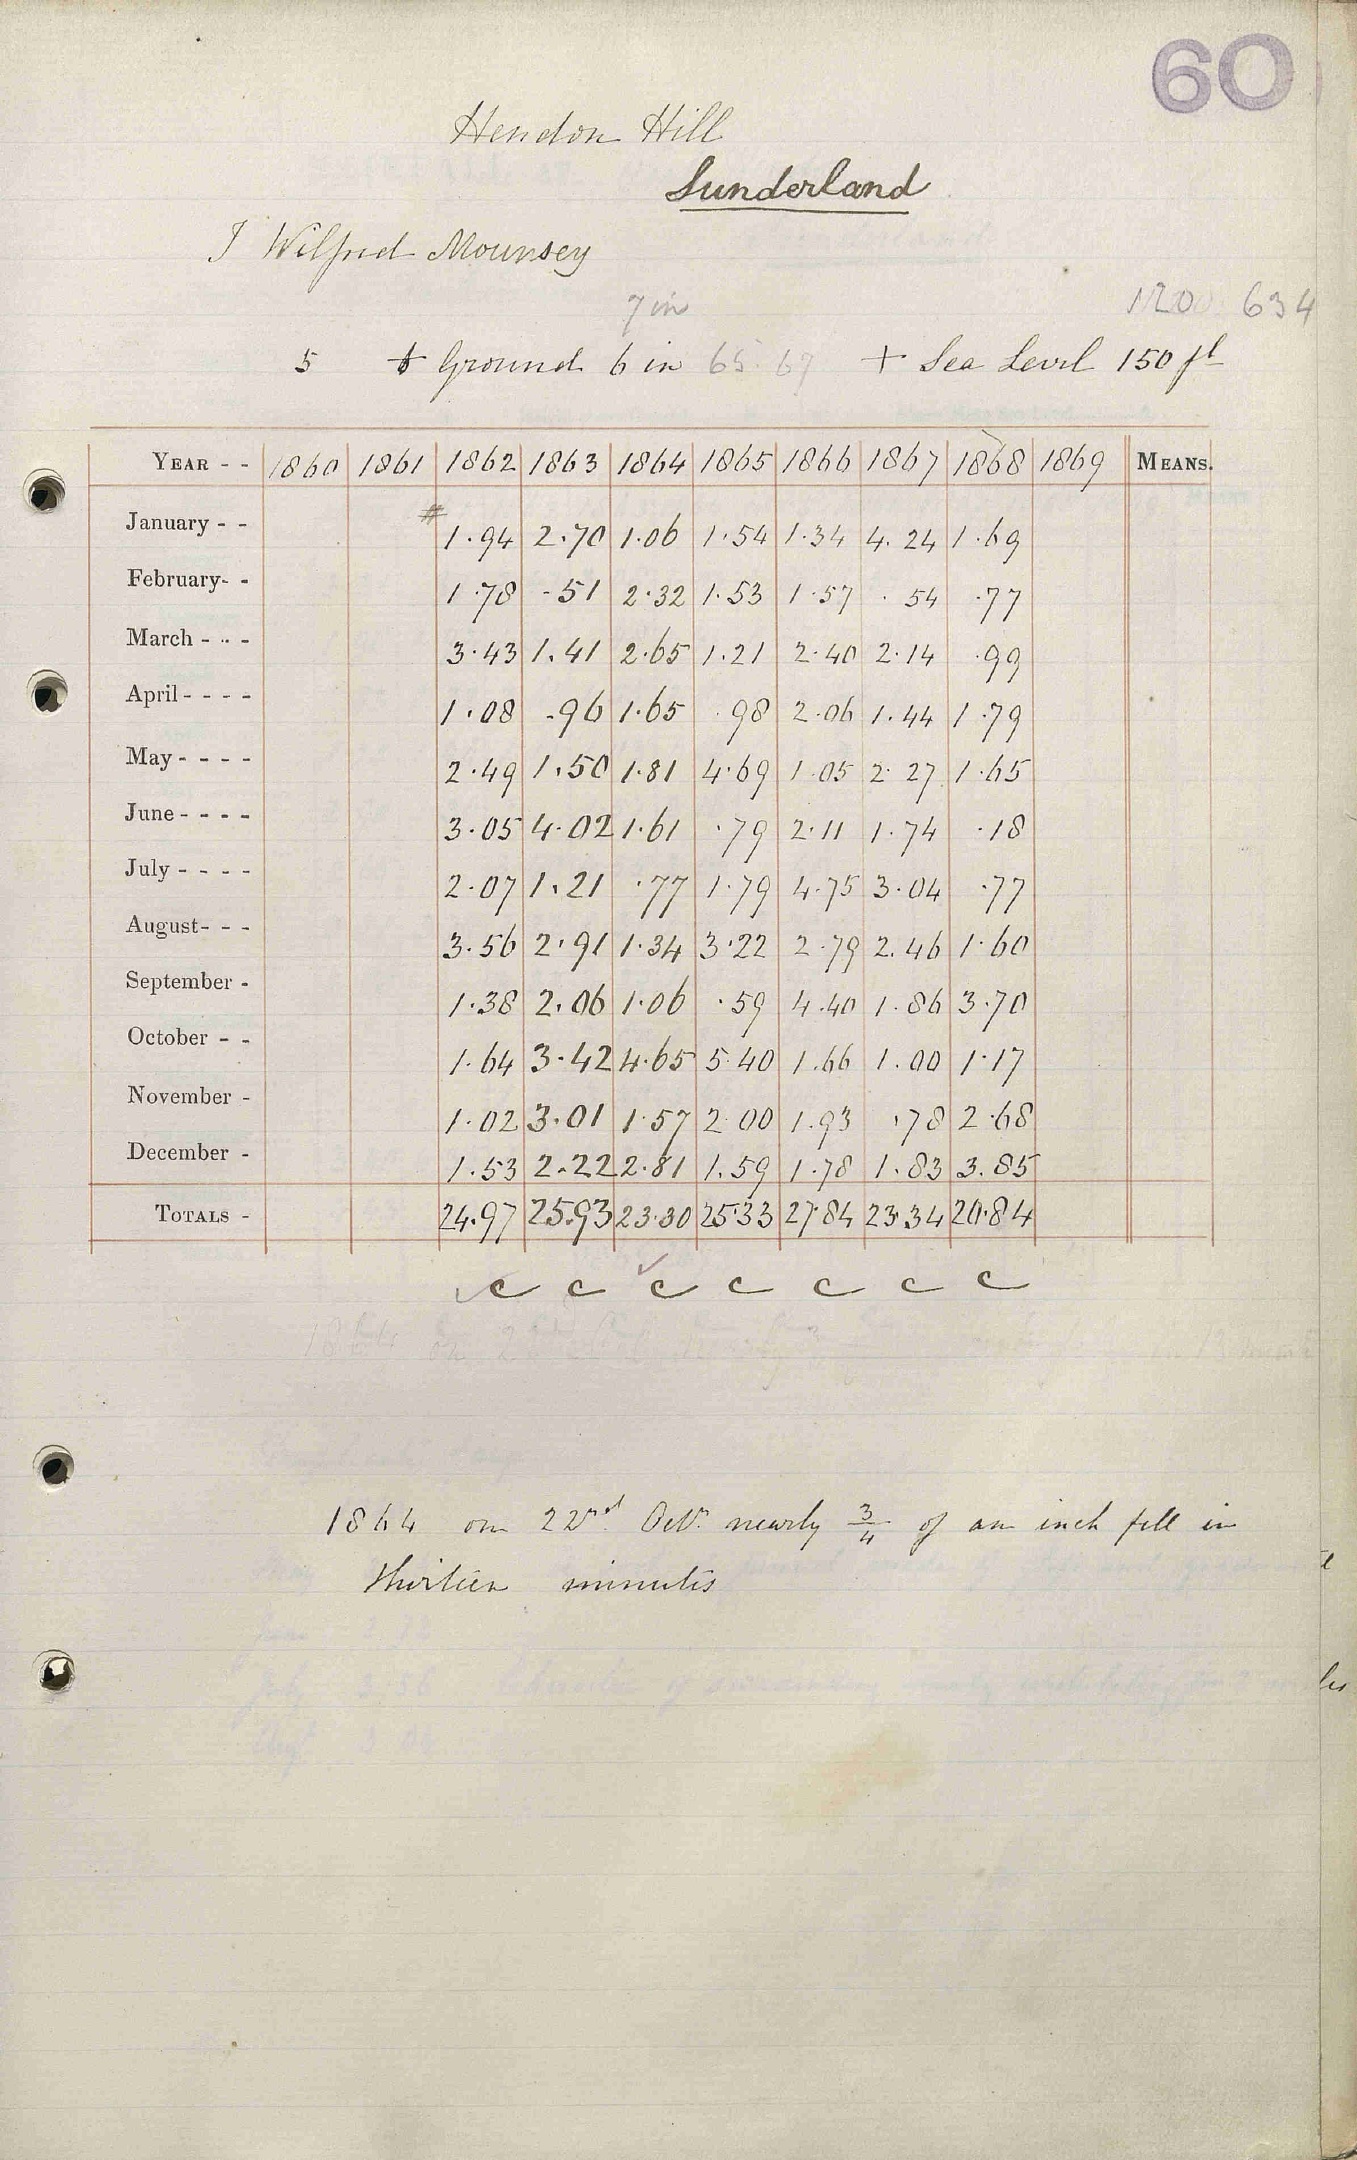 60
Hendon Hill
Sunderland
J Wilfrid Mounsey
7 in
120 634
5 + Ground 6 in 65. 67 + Sea Level 150 ft
YEAR - - 1860 1861 1862 1863 1864 1865 1866 1867 1868 1869 MEANS.
January - - # 1.94 2.70 1.06 1.54 1.34 4.24 1.69
February- - 1.78 .51 2.32 1.53 1.57 .54 .77
March - - - 3.43 1.41 2.65 1.21 2.40 2.14 .99
April - - - - 1.08 .96 1.65 .98 2.06 1.44 1.79
May - - - - 2.49 1.50 1.81 4.69 1.05 2.27 1.65
June - - - - 3.05 4.02 1.61 .79 2.11 1.74 .18
July - - - - 2.07 1.21 .77 1.79 4.75 3.04 .77
August- - - 3.56 2.91 1.34 3.22 2.79 2.46 1.60
September - 1.38 2.06 1.06 .59 4.40 1.86 3.70
October - - 1.64 3.42 4.65 5.40 1.66 1.00 1.17
November - 1.02 3.01 1.57 2.00 1.93 .78 2.68
December - 1.53 2.22 2.81 1.59 1.78 1.83 3.85
TOTALS - 24.97 25.93 23.30 25.33 27.84 23.34 20.84
c c c c c c c
1864 on 22nd Octr. nearly 3/4 of an inch fell in
thirteen minutes